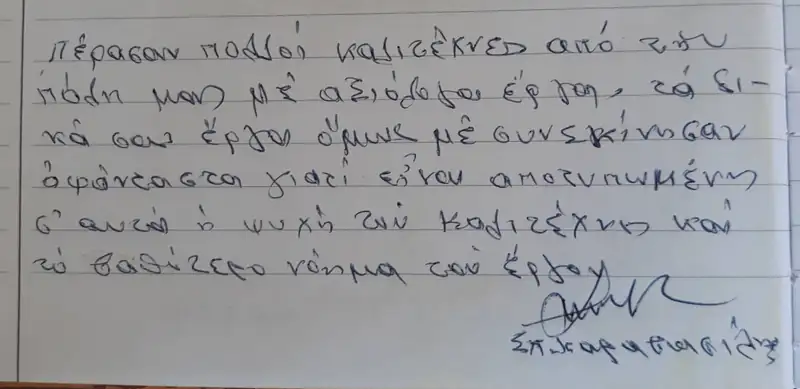 Πέρασαν πολλοί καλιτέχνες από την
πόλη μας μέ αξιόλογα έργα, τά δι-
κά σας έργα όμως μέ συνεκίνησαν
αφάνταστα γιατί είναι αποτυπωμένη
σ' αυτά ή ψυχή τού καλιτέχνη καί
τό βαθύτερο νόημα τού έργου